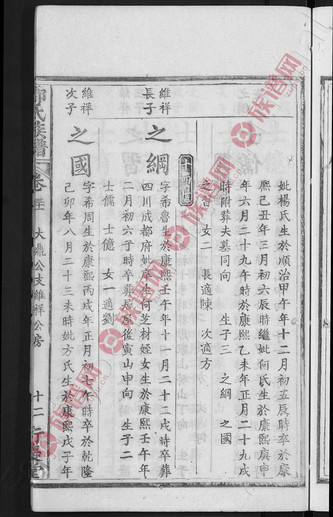 妣楊氏生於順治甲午年十二月初五辰時卒於康
熙己丑年三月初六辰時繼妣何氏生於康熙庚申
年六月二十九午時於康熙乙未年正月二十九戌
時附葬夫墓同向 生子三 之綱 之國
之百 女二 長適陳 次適方
十四世
維祥
長子
之綱
字希魯生於康熙壬午年十一月二十二戌時卒葬
四川成都府妣李生何芝材姪女生於康熙壬午年
二月初六子時卒葬長房後寅山申向 生子二
士儒 士億 女一適劉
維祥
次子
之國
字希周生於康熙丙戌年正月初七午時卒於乾隆
己卯年八月二十三未時妣方氏生於康熙戊子年
氏族譜
卷
大 公支維祥公房
十二
堂
族譜网